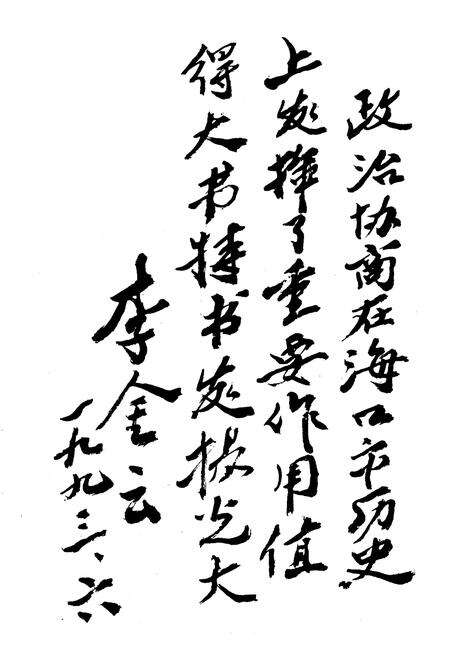 政治协商在海口市历史
上发挥了重要作用值
得大书特书发扬光大
李金云
一九九三、六